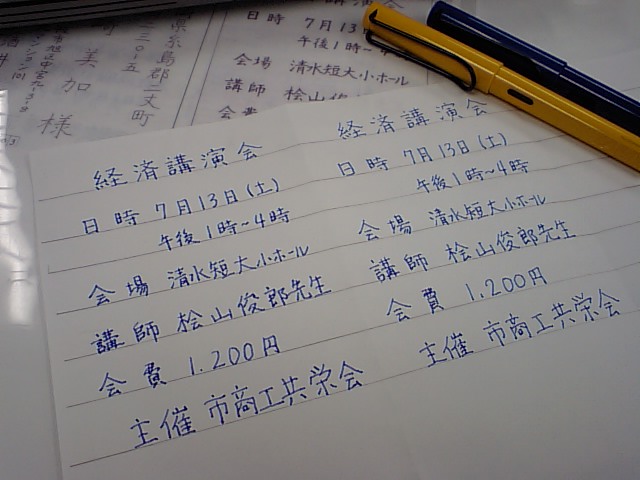 経済講演会
日時 7月13日(土)
午後1時~4時
会場 清水短大小ホール
講師 桧山俊郎先生
会費 1.200円
主催 市商工共栄会
経済講演会
日時 7月13日(土)
午後1時~4時
会場 清水短大小ホール
講師 桧山俊郎先生
会費 1.200円
主催 市商工共栄会
講演会
日時 7月13
午後1時~
会場 清水短大小ホール
講師 桧山俊郎
会費
県糸島郡二丈町
三〇一五
美加様